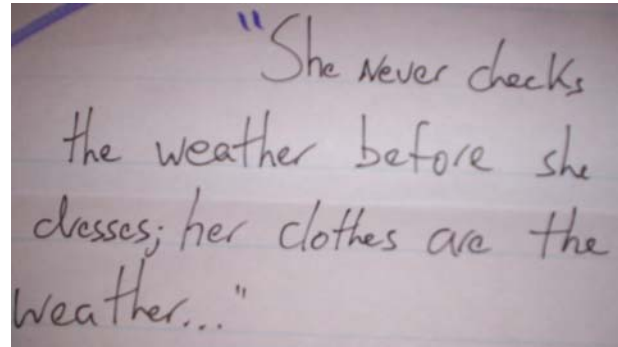 "She Never checks
the weather before she
dresses; her clothes are the
weather..."